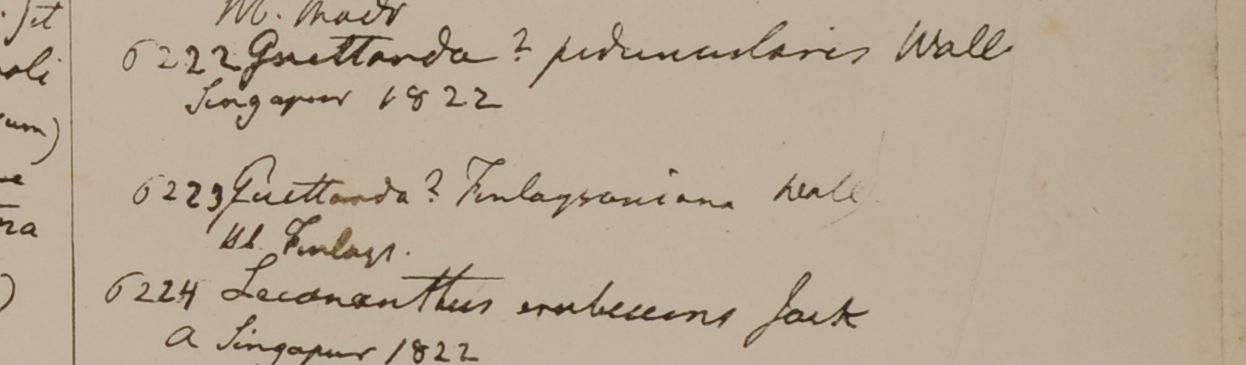 6222 Guettarda ? peduncularis Wall
Singapur 1822
6223 Guettarda ? Finlaysoniana Wall
Hb. Finlays.
6224 Lecananthus erubescens Jack
a Singapur 1822